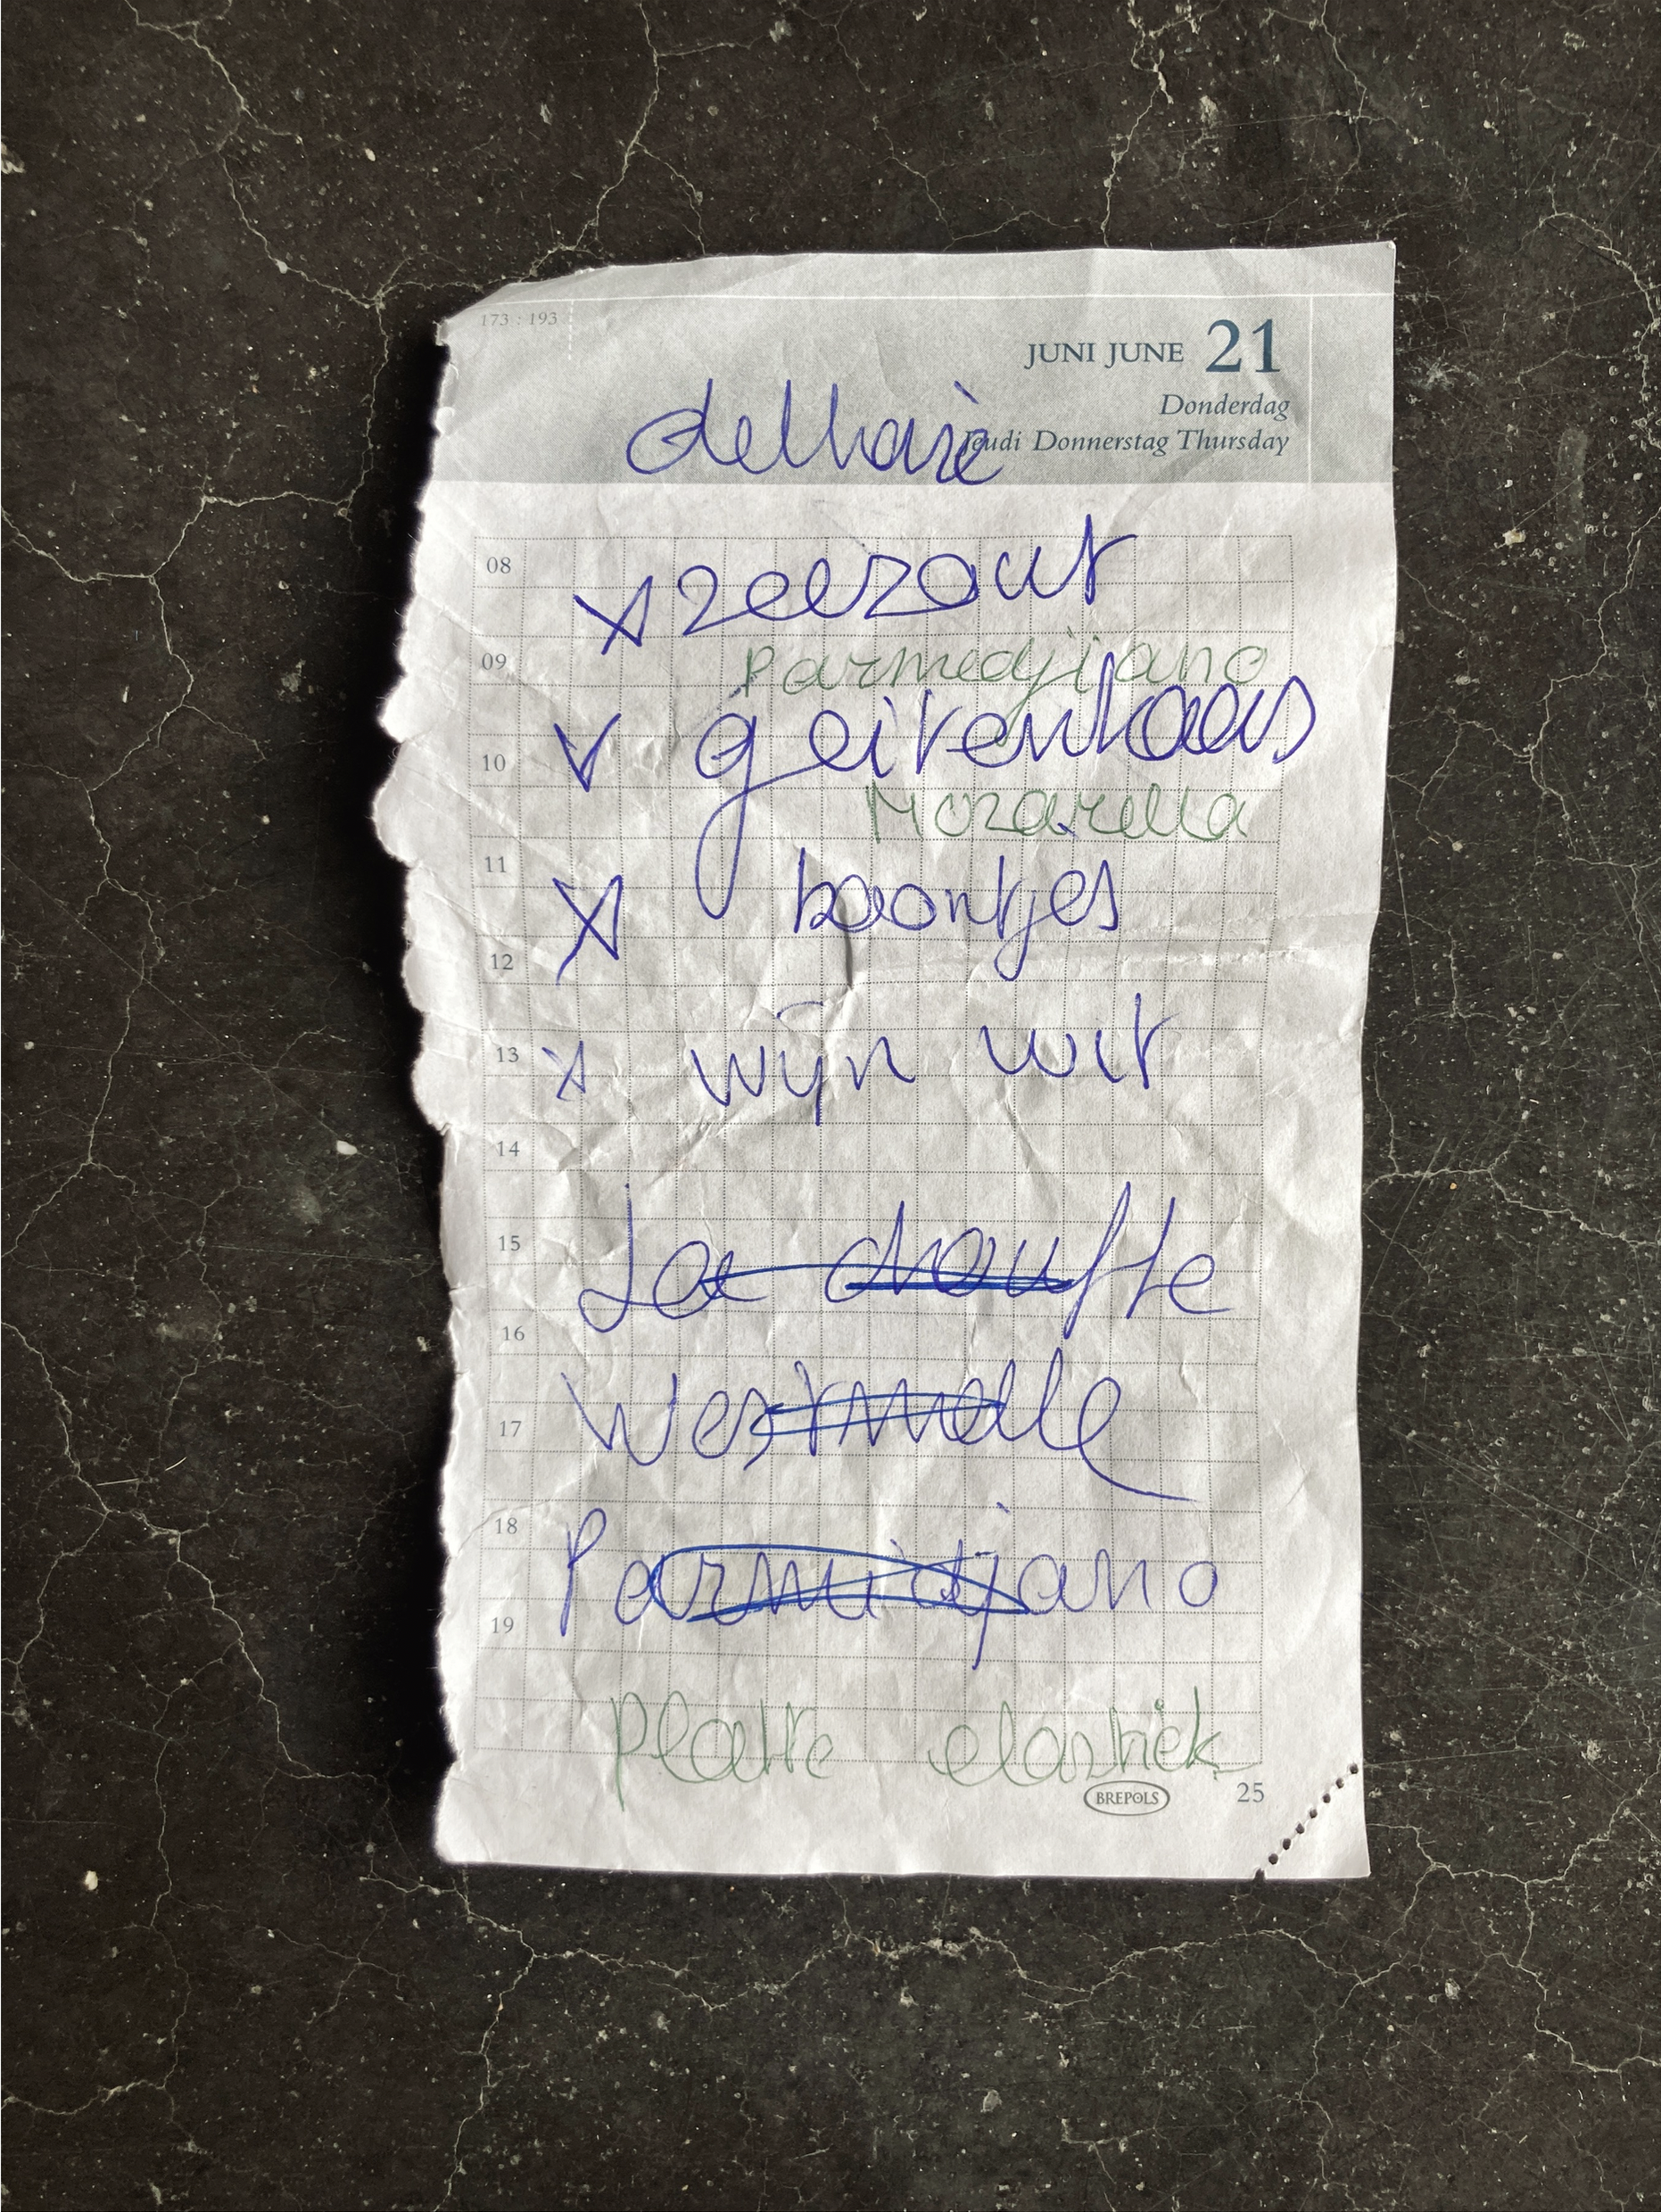 173 : 193
JUNI JUNE 21
Donderdag
Jeudi Donnerstag Thursday
delhaize
08
x zeezout
09
Parmedjiano
10
v geitenkaas
Mozarella
11
x boontjes
12
13
x wijn wit
14
15
La chouffe
16
17
Westmalle
18
Parmidjano
19
Platte elastiek
BREPOLS
25